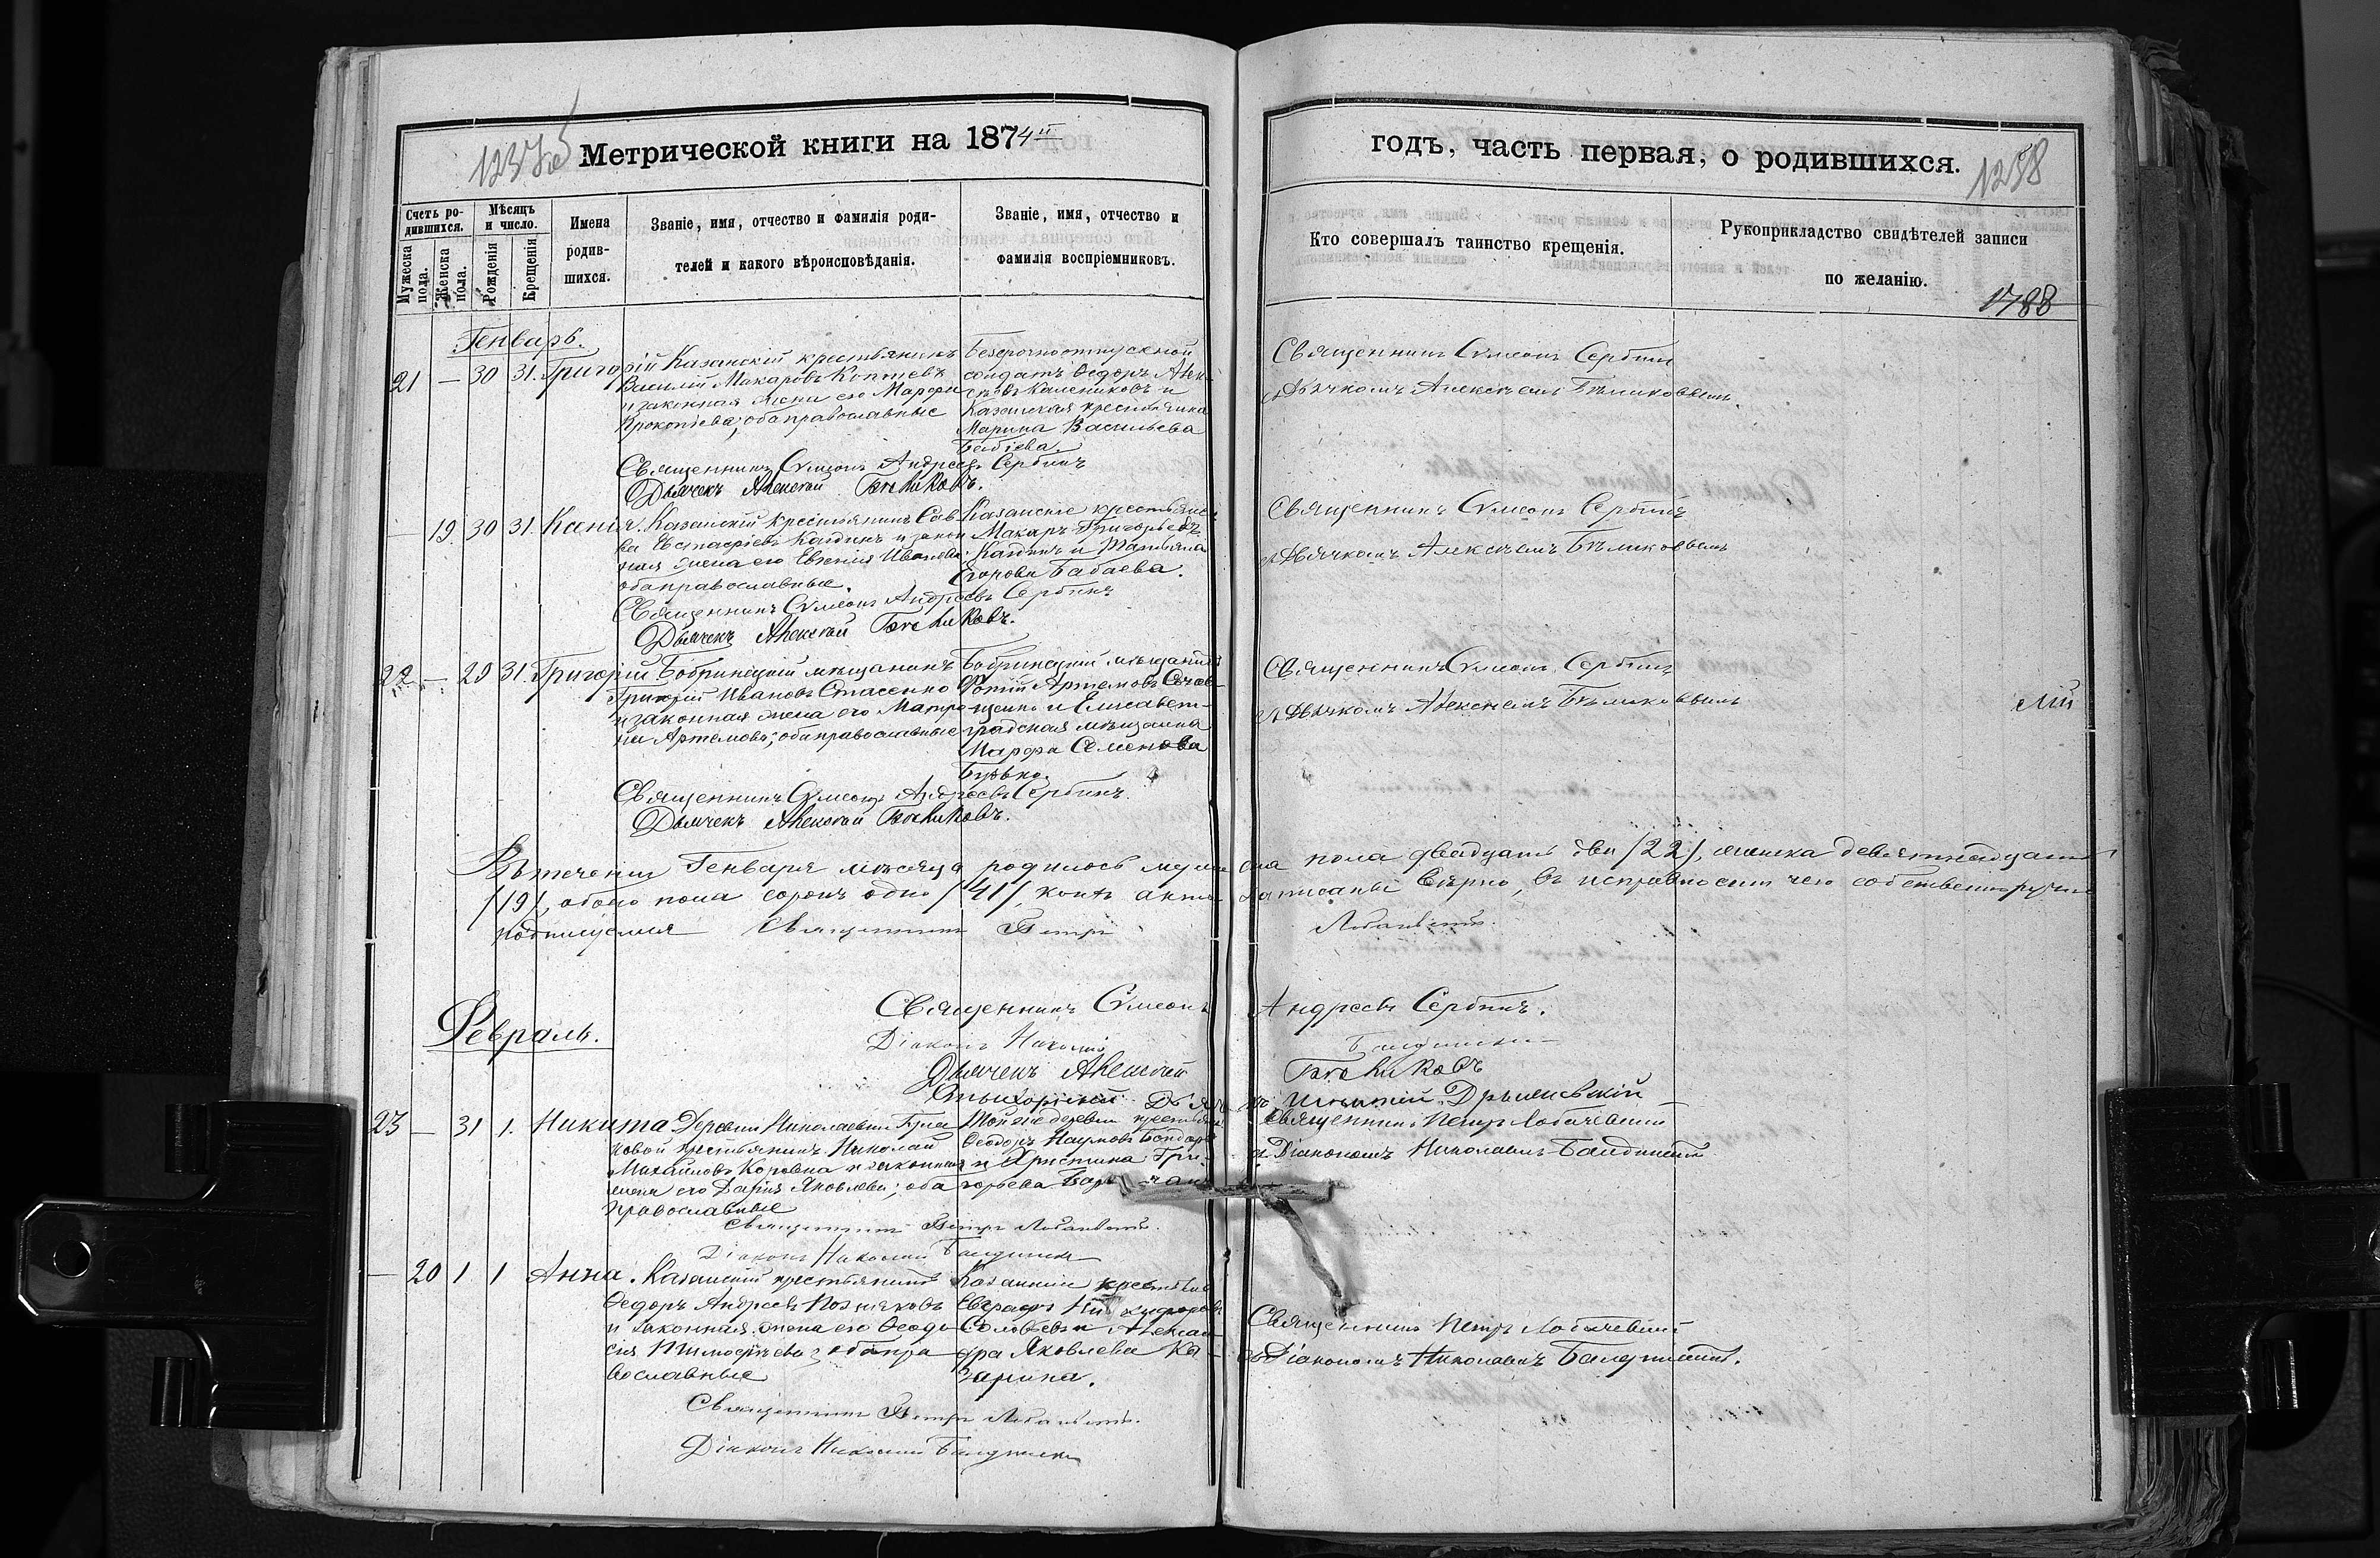 Метрической книги на 1874й
годъ, часть первая, о родившихся.
1238
1788
Счетъ родившихся.
Мужеска пола.
Женска пола.
Мѣсяцъ и число.
Рожденія
Крещенія
Имена родившихся.
Званіе, имя, отчество и фамилія родителей и какого вѣроисповѣданія.
Званіе, имя, отчество и фамилія воспріемниковъ.
Кто совершалъ таинство крещенія.
Рукоприкладство свидѣтелей записи по желанію.
Генварь.
21 — 30 31. Григорій Казанскій крестьянинъ
Василій Макаровъ Коптевъ
и законная жена его Марфа
Прокопіева; оба православные
Безсрочноотпускной
солдатъ Ѳедоръ
и
Казанская крестьянка
Марина Васильева
Бабіева.
Священникъ Сумеонъ Сербинъ
съ Дьячкомъ Алексѣемъ Бѣликовымъ.
Священникъ Сумеонъ Андреевъ Сербинъ
Дьячекъ Алексѣй Бѣликовъ.
— 19. 30 31. Ксенія. Казанскій крестьянинъ Сав-
ва Евстафіевъ и закон
ная жена его Евгенія Иванова
оба православные.
Казанские крестьяне
Макаръ Григорьевъ
и Татьяна
Егорова Бабаева.
Священникъ Сумеонъ Сербинъ
съ Дьячкомъ Алексѣемъ Бѣликовымъ
Священникъ Сумеонъ Андреевъ Сербинъ
Дьячекъ Алексѣй Бѣликовъ.
22 — 29 31. Григорій Бобринецкій мѣщанинъ
Григорій Ивановъ Стасенко
и законная жена его Матро
на Артемова; оба православные
Бобринецкій мѣщанинъ
Фотій Артемовъ
и Елисавет-
градская мѣщанка
Марфа Семенова
Священникъ Сумеонъ Сербинъ
съ Дьячкомъ Алексѣемъ Бѣликовымъ
Священникъ Сумеонъ Андреевъ Сербинъ.
Дьячекъ Алексѣй Бѣликовъ.
Въ теченіи Генваря мѣсяца родилось муже ска пола двадцать два /22/, женска девятнадцать
/19/, обоего пола сорокъ одно /41/, коихъ акты записаны вѣрно, въ исправности чего собственноручно
подписуемся Священникъ Петръ Лобачевскій.
Священникъ Сумеонъ Андреевъ Сербинъ.
Діаконъ Николай
Дьячекъ Алексѣй Бѣликовъ
Февраль.
23 — 31 1. Никита Деревни Николаевки
крестьянинъ Николай
Михайловъ и законная
жена его Дарія Яковлева; оба
православные
Той же деревни
Ѳеодоръ Наумовъ
и Христина Гри-
горьева
Священникъ Петръ Лобачевскій
съ Діакономъ Николаемъ
Священникъ Петръ Лобачевскій.
Діаконъ Николай
— 20 1 1 Анна. Казанскій крестьянинъ
Ѳедоръ Андреевъ Позняковъ
и законная жена его Ѳеодо-
сія Тимофѣева; оба пра
вославные
Казанскій
Евграфъ
Соловьевъ и Алексан-
дра Яковлева Ка-
зарина.
Священникъ Петръ Лобачевскій
съ Діакономъ Николаемъ
Священникъ Петръ Лобачевскій.
Діаконъ Николай